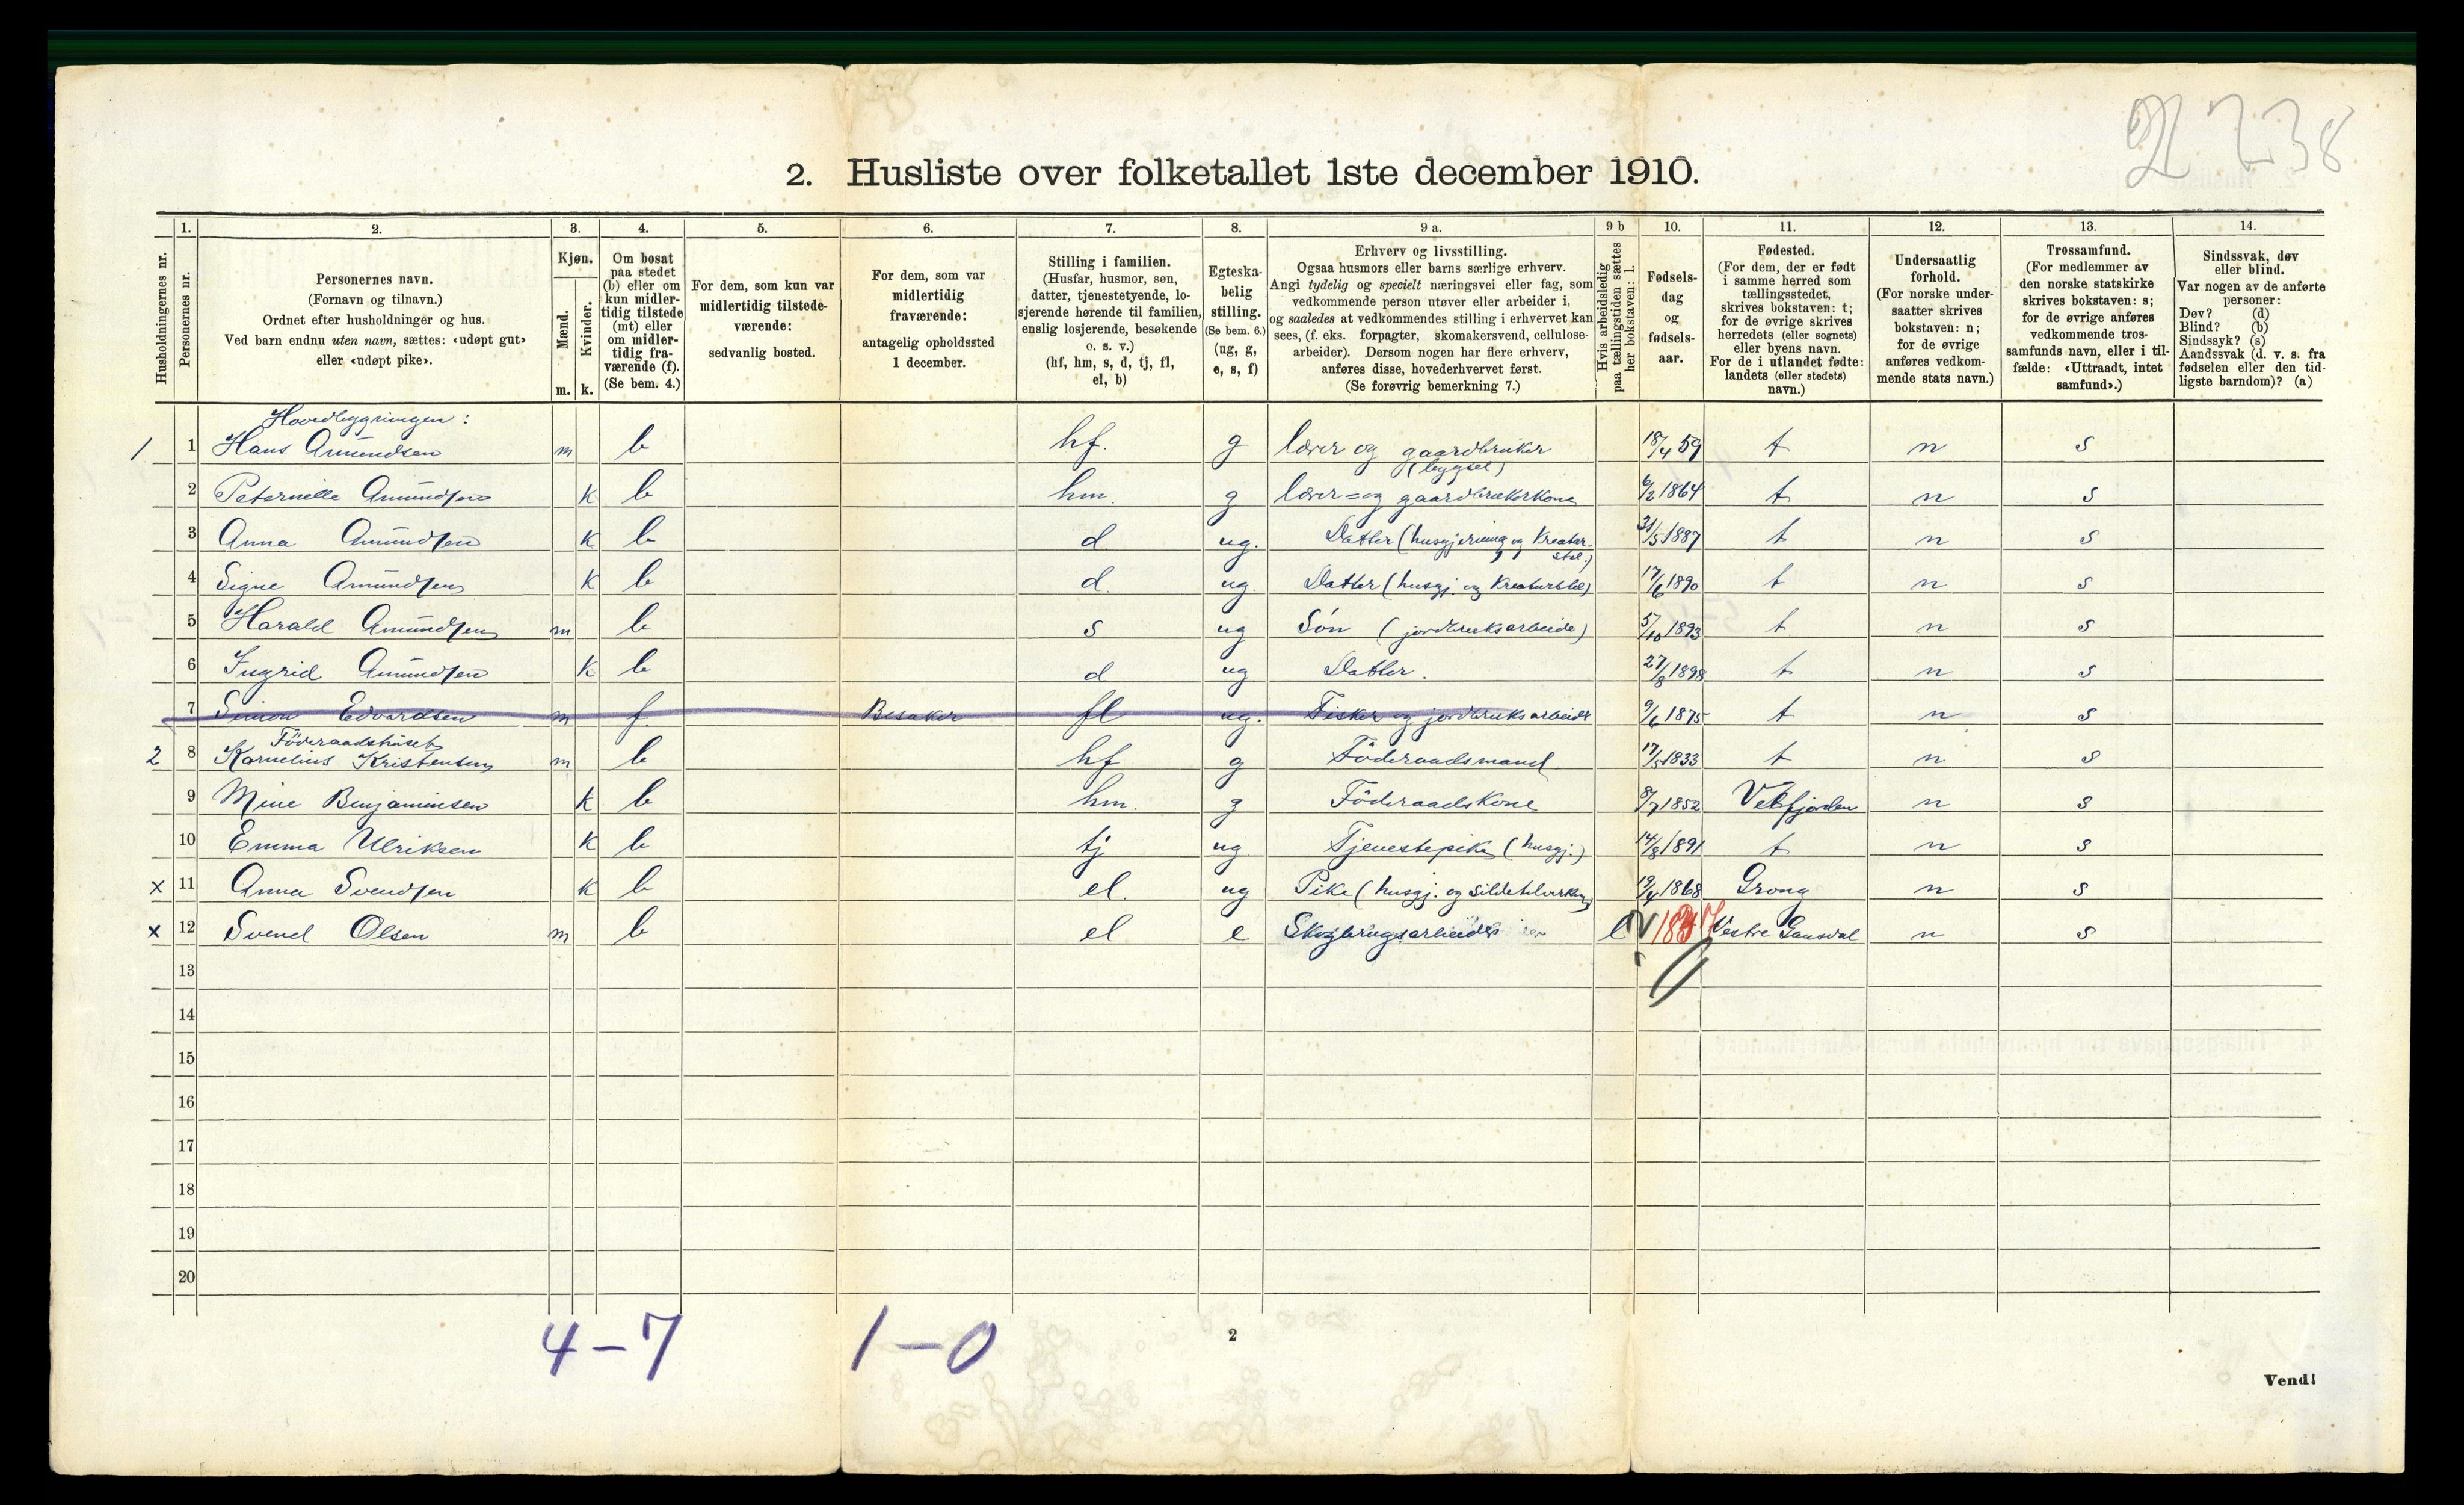 2 238
2. Husliste over folketallet 1ste december 1910.
Husholdningernes nr.
1. Personernes nr.
2. Personernes navn. (Fornavn og tilnavn.) Ordnet efter husholdninger og hus. Ved barn endnu uten navn, sættes: «udøpt gut» eller «udøpt pike».
3. Kjøn. Mænd. m. Kvinder. k.
4. Om bosat paa stedet (b) eller om kun midlertidig tilstede (mt) eller om midlertidig fraværende (f). (Se bem. 4.)
5. For dem, som kun var midlertidig tilstedeværende: sedvanlig bosted.
6. For dem, som var midlertidig fraværende: antagelig opholdssted 1 december.
7. Stilling i familien. (Husfar, husmor, søn, datter, tjenestetyende, losjerende hørende til familien, enslig losjerende, besøkende o. s. v.) (hf, hm, s, d, tj, fl, el, b)
8. Egteskabelig stilling. (Se bem. 6.) (ug, g, e, s, f)
9 a. Erhverv og livsstilling. Ogsaa husmors eller barns særlige erhverv. Angi tydelig og specielt næringsvei eller fag, som vedkommende person utøver eller arbeider i, og saaledes at vedkommendes stilling i erhvervet kan sees, (f. eks. forpagter, skomakersvend, cellulosearbeider). Dersom nogen har flere erhverv, anføres disse, hovederhvervet først. (Se forøvrig bemerkning 7.)
9 b Hvis arbeidsledig paa tællingstiden sættes her bokstaven: l.
10. Fødselsdag og fødselsaar.
11. Fødested. (For dem, der er født i samme herred som tællingsstedet, skrives bokstaven: t; for de øvrige skrives herredets (eller sognets) eller byens navn. For de i utlandet fødte: landets (eller stedets) navn.)
12. Undersaatlig forhold. (For norske undersaatter skrives bokstaven: n; for de øvrige anføres vedkommende stats navn.)
13. Trossamfund. (For medlemmer av den norske statskirke skrives bokstaven: s; for de øvrige anføres vedkommende trossamfunds navn, eller i tilfælde: «Uttraadt, intet samfund».)
14. Sindssvak, døv eller blind. Var nogen av de anførte personer: Døv? (d) Blind? (b) Sindssyk? (s) Aandssvak (d. v. s. fra fødselen eller den tidligste barndom)? (a)
Hovedbygningen:
1 1 Hans Amundsen m b hf. g lærer og gaardbruker (bygsel) 18/4 59 t n s
2 Peternelle Amundsen k b hm. g lærer= og gaardbrukerkone 6/2 1864 t n s
3 Anna Amundsen k b d ug. Datter (husgjerning og Kreaturstel.) 31/5 1887 t n s
4 Signe Amundsen k b d. ug. Datter (husgj. og Kreaturstel) 17/6 1890 t n s
5 Harald Amundsen m b s ug Sön (jordbruksarbeide) 5/10 1893 t n s
6 Ingrid Amundsen k b d ug Datter. 27/8 1898 t n s
7 Simon Edvardsen m f. Besaker fl ug. Fisker og jordbruksarbeider 9/6 1875 t n s
Föderaadshuset
2 8 Kornelius Kristensen m b hf g Föderaadsmand 17/5 1833 t n s
9 Mine Benjaminsen k b hm. g Föderaadskone 8/7 1852 Velfjorden n s
10 Emma Ulriksen k b tj ug Tjenestepike (husgj.) 14/8 1891 t n s
x 11 Anna Svendsen k b el. ug Pike (husgj. og Sildetilvirkning 19/4 1868 Grong n s
x 12 Svend Olsen m b el e Skogbrugsarbeider l Vestre Gausdal n s
13
14
15
16
17
18
19
20
4-7 1-0
2
Vend!